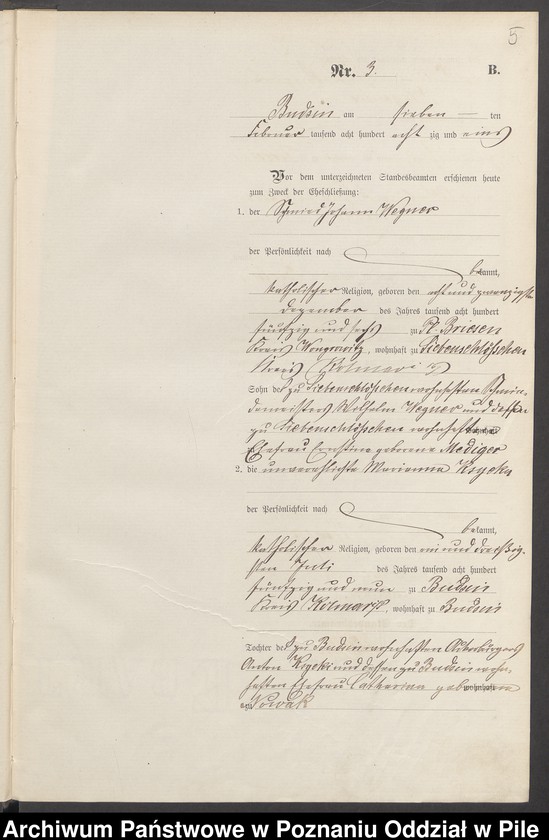 5
Nr. 3. B.
Budsin am sieben ten
Februar tausend acht hundert acht zig und eins
Vor dem unterzeichneten Standesbeamten erschienen heute
zum Zweck der Eheschließung:
1. der Schmied Johann Wegner
der Persönlichkeit nach
bekannt,
katholischer Religion, geboren den acht und zwanzigsten
Dezember des Jahres tausend acht hundert
fünfzig und sechs zu Pl. Briesen
Kreis Wongrowitz, wohnhaft zu Siebenschlösschen
Kreis Kolmar i/P
Sohn des zu Siebenschlösschen wohnhaften Schmie-
demeisters Wilhelm Wegner und dessen
zu Siebenschlösschen wohnhaften wohnhaft
zu Ehefrau Ernstine geborene Mediger
2. die unverehelichte Marianna Krycka
der Persönlichkeit nach
bekannt,
katholischer Religion, geboren den ein und dreißig-
sten Juli des Jahres tausend acht hundert
fünfzig und neun zu Budsin
Kreis Kolmar i/P, wohnhaft zu Budsin
Tochter des zu Budsin wohnhaften Ackerbürgers
Anton Krycki und dessen zu Budsin wohn-
haften Ehefrau Catharina geborene wohnhaft
zu Nowak
Archiwum Państwowe w Poznaniu Oddział w Pile